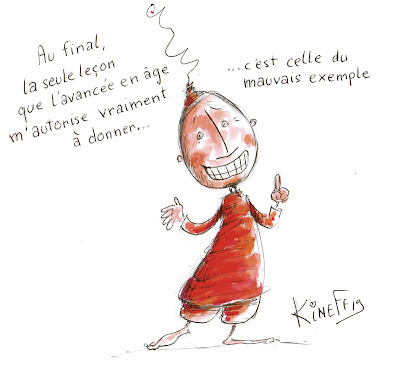 Au final,
la seule leçon
que l'avancée en âge
m'autorise vraiment
à donner...
...c'est celle du
mauvais exemple
KiNEFF19